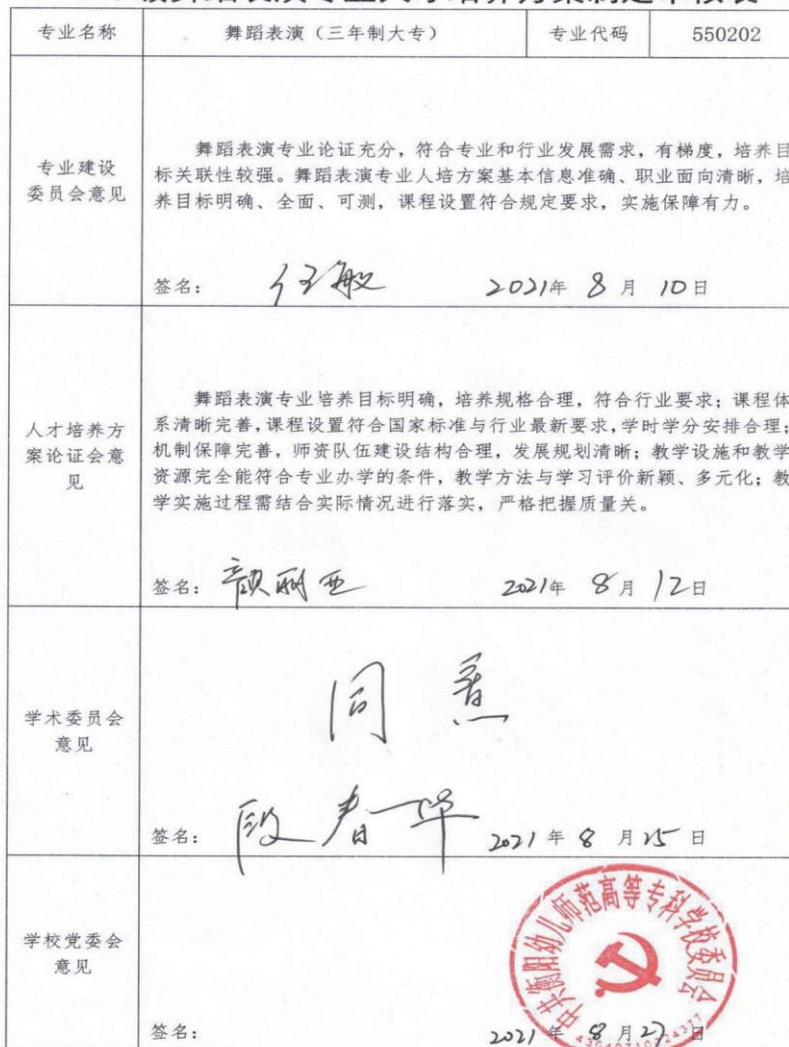 级舞蹈表演专业人才培养方案制定审核表
专业名称
舞蹈表演（三年制大专）
专业代码
550202
专业建设
委员会意见
舞蹈表演专业论证充分，符合专业和行业发展需求，有梯度，培养目
标关联性较强。舞蹈表演专业人培方案基本信息准确、职业面向清晰，培
养目标明确、全面、可测，课程设置符合规定要求，实施保障有力。
签名： 任敏 2021年 8 月 10日
人才培养方
案论证会意
见
舞蹈表演专业培养目标明确，培养规格合理，符合行业要求；课程体
系清晰完善，课程设置符合国家标准与行业最新要求，学时学分安排合理；
机制保障完善，师资队伍建设结构合理，发展规划清晰；教学设施和教学
资源完全能符合专业办学的条件，教学方法与学习评价新颖、多元化；教
学实施过程需结合实际情况进行落实，严格把握质量关。
签名： 颜丽亚 2021年 8 月 12日
学术委员会
意见
同意
签名： 段春华 2021 年 8 月 25 日
学校党委会
意见
中共衡阳幼儿师范高等专科学校委员会
签名： 2021 年 8 月 27 日